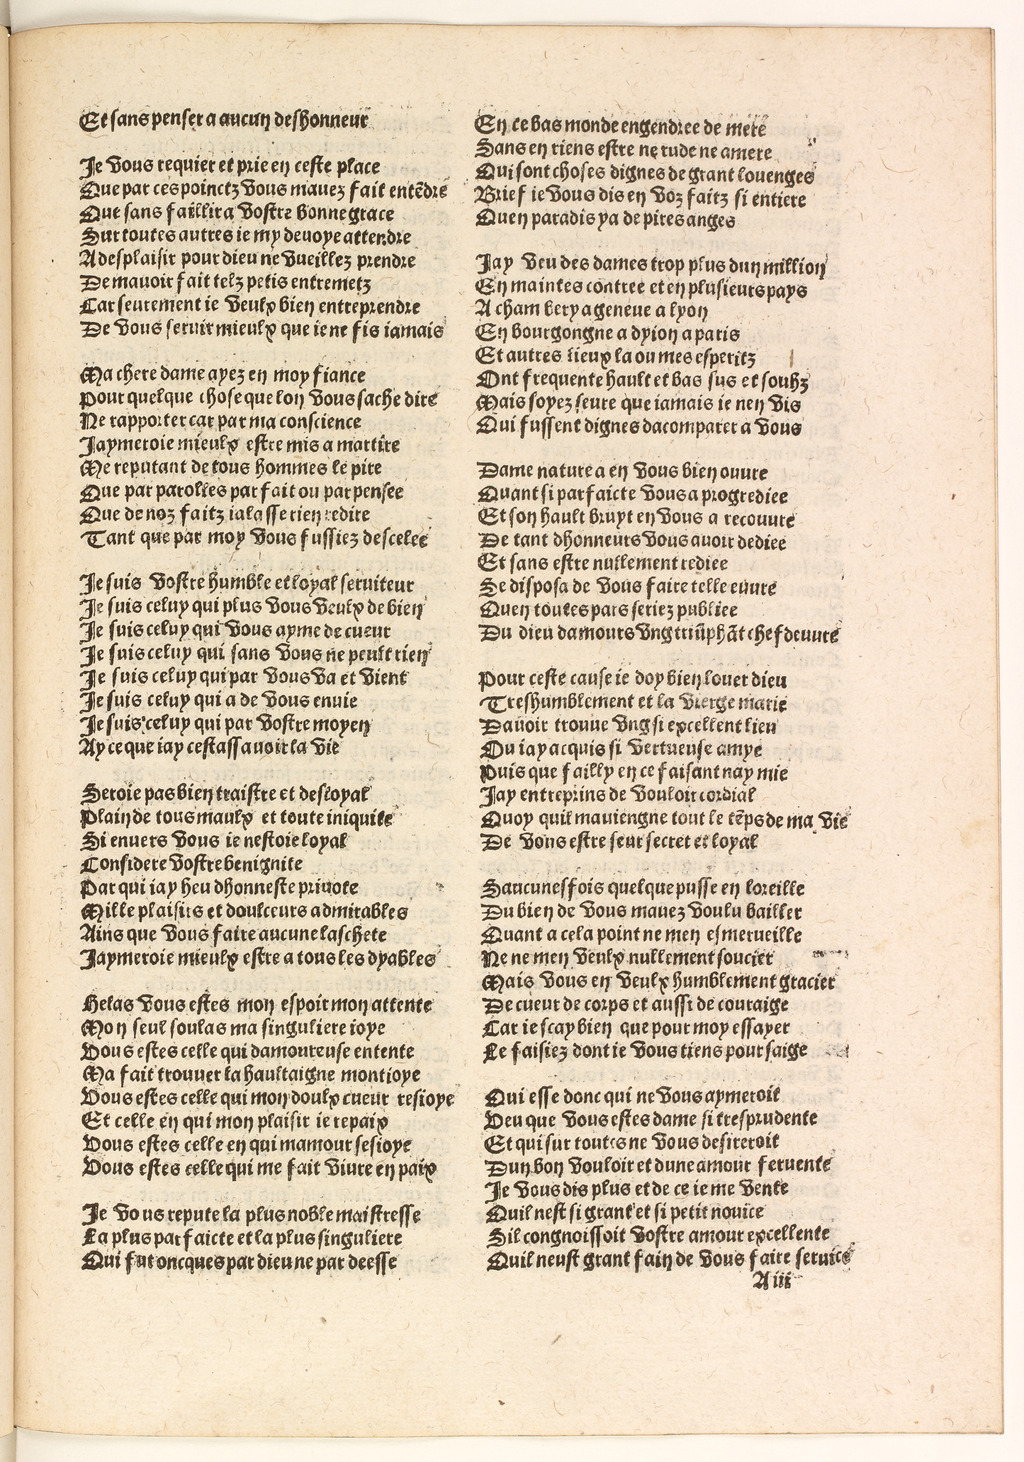 Et sans penser a aucun deshonneur
Je vous requier et prie en ceste place
Que par ces poinctz vous mavez fait entēdre
Que sans faillir a vostre bonne grace
Sur toutes autres ie my devoye attendre
A desplaisir pour dieu ne vueillez prendre
De mavoir fait telz petis entremetz
Car seurement ie veulx bien entreprendre
De vous servir mieulx que ie ne fis iamais
Ma chere dame ayez en moy fiance
Pour quelque chose que lon vous sache dire
Ne rapporter car par ma conscience
Jaymeroie mieulx estre mis a martire
Me reputant de tous hommes le pire
Que par parolles par fait ou par pensee
Que de noz faitz ialasse rien redire
Tant que par moy vous fussiez descelee
Je suis vostre humble et loyal serviteur
Je suis celuy qui plus vous veulx de bien
Je suis celuy qui vous ayme de cueur
Je suis celuy qui sans vous ne peult rien
Je suis celuy qui par vous va et vient
Je suis celuy qui a de vous envie
Je suis celuy qui par vostre moyen
Ay ce que iay cestassavoir la vie
Seroie pas bien traistre et desloyal
Plain de tous maulx et toute iniquite
Si envers vous ie nestoie loyal
Considere vostre benignite
Par qui iay heu dhonneste privote
Mille plaisirs et doulceurs admirables
Ains que vous faire aucune laschete
Jaymeroie mieulx estre a tous les dyables
Helas vous estes mon espoir mon attente
Mon seul soulas ma singuliere ioye
Vous estes celle qui damoureuse entente
Ma fait trouver la haultaigne montioye
Vous estes celle qui mon doulx cueur resioye
Et celle en qui mon plaisir ie repaix
Vous estes celle en qui mamour sesioye
Vous estes celle qui me fait vivre en paix
Je vous repute la plus noble maistresse
La plus parfaicte et la plus singuliere
Qui fut oncques par dieu ne par deesse
En ce bas monde engendree de mere
Sans en riens estre ne rude ne amere
Qui sont choses dignes de grant louenges
Brief ie vous dis en voz faitz si entiere
Quen paradis ya de pires anges
Jay veu des dames trop plus dun million
En maintes contree et en plusieurs pays
A chambery a geneve a lyon
En bourgongne a dyion a paris
Et autres lieux la ou mes esperitz
Ont frequente hault et bas sus et soubz
Mais soyez seure que iamais ie nen vis
Qui fussent dignes dacomparer a vous
Dame nature a en vous bien ouvre
Quant si parfaicte vous a progrediee
Et son hault bruyt en vous a recouvre
De tant dhonneurs vous avoir dediee
Et sans estre nullement rediee
Se disposa de vous faire telle euvre
Quen toutes pars seriez publiee
Du dieu damours ung triūphāt chef deuvre
Pour ceste cause ie doy bien louer dieu
Treshumblement et la vierge marie
Davoir trouve ung si excellent lieu
Ou iay acquis si vertueuse amye
Puis que failly en ce faisant nay mie
Jay entreprins de vouloir cordial
Quoy quil maviengne tout le tēps de ma vie
De vous estre seur secret et loyal
Saucunesfois quelque pusse en loreille
Du bien de vous mavez voulu bailler
Quant a cela point ne men esmerveille
Ne ne men veulx nullement soucier
Mais vous en veulx humblement gracier
De cueur de corps et aussi de couraige
Car ie scay bien que pour moy essayer
Le faisiez dont ie vous tiens pour saige
Qui esse donc qui ne vous aymeroit
Veu que vous estes dame si tresprudente
Et qui sur toutes ne vous desireroit
Dun bon vouloir et dune amour fervente
Je vous dis plus et de ce ie me vente
Quil nest si grant et si petit novice
Sil congnoissoit vostre amour excellente
Quil neust grant fain de vous faire service
A iii